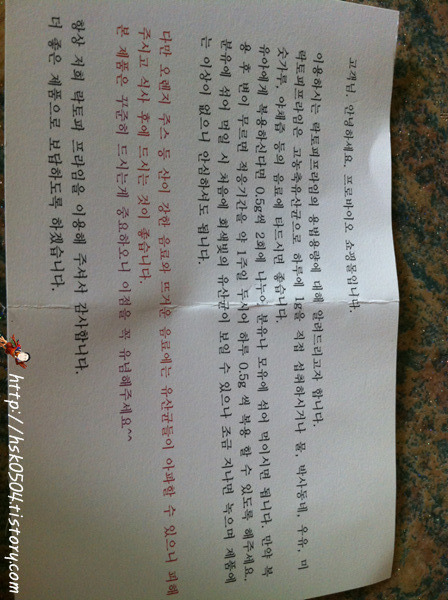 고객님, 안녕하세요. 프로바이오 쇼핑몰입니다.
이용하시는 락토피프라임의 용법용량에 대해 알려드리고자 합니다.
락토피프라임은 고농축유산균으로 하루에 1g을 직접 섭취하시거나 물, 박사동네, 우유, 미
숫가루, 야채즙 등의 음료에 타드시면 좋습니다.
유아에게 복용하신다면 0.5g씩 2회에 나누어 분유나 모유에 섞어 먹이시면 됩니다. 만약 복
용 후 변이 무르면 적응기간을 약 1주일 두시어 하루 0.5g 씩 복용 할 수 있도록 해주세요.
분유에 섞어 먹일 시 처음에 회색빛의 유산균이 보일 수 있으나 조금 지나면 녹으며 제품에
는 이상이 없으니 안심하셔도 됩니다.
다만 오렌지 주스 등 산이 강한 음료와 뜨거운 음료에는 유산균들이 아파할 수 있으니 피해
주시고 식사 후에 드시는 것이 좋습니다.
본 제품은 꾸준히 드시는게 중요하오니 이점을 꼭 유념해주세요^^
항상 저희 락토피 프라임을 이용해 주셔서 감사합니다.
더 좋은 제품으로 보답하도록 하겠습니다.
http://hsk0504.tistory.com